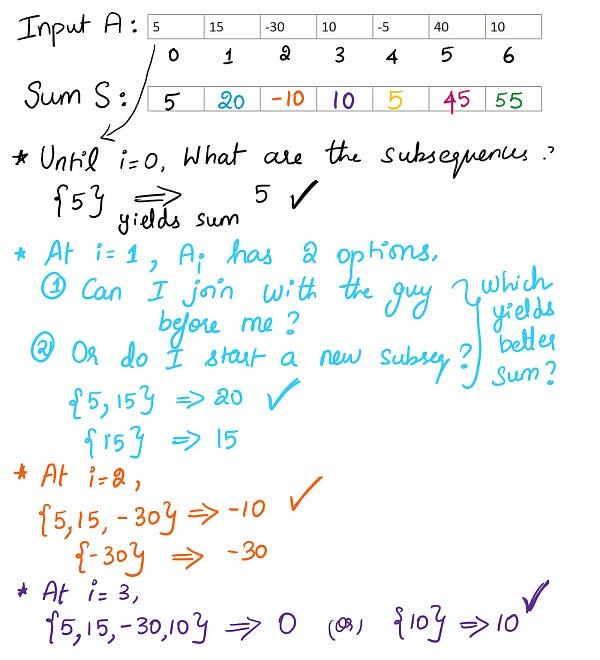 Input A: 5 15 -30 10 -5 40 10
0 1 2 3 4 5 6
Sum S: 5 20 -10 10 5 45 55
* Until i=0, What are the subsequences?
{5} ⟹ 5 ✓
yields sum
* At i=1, Ai has 2 options.
① Can I join with the guy
before me?
② Or do I start a new subseq?
} which
yields
better
sum?
{5,15} ⟹ 20 ✓
{15} ⟹ 15
* At i=2,
{5,15,-30} ⟹ -10 ✓
{-30} ⟹ -30
* At i=3,
{5,15,-30,10} ⟹ 0 (or) {10} ⟹ 10 ✓